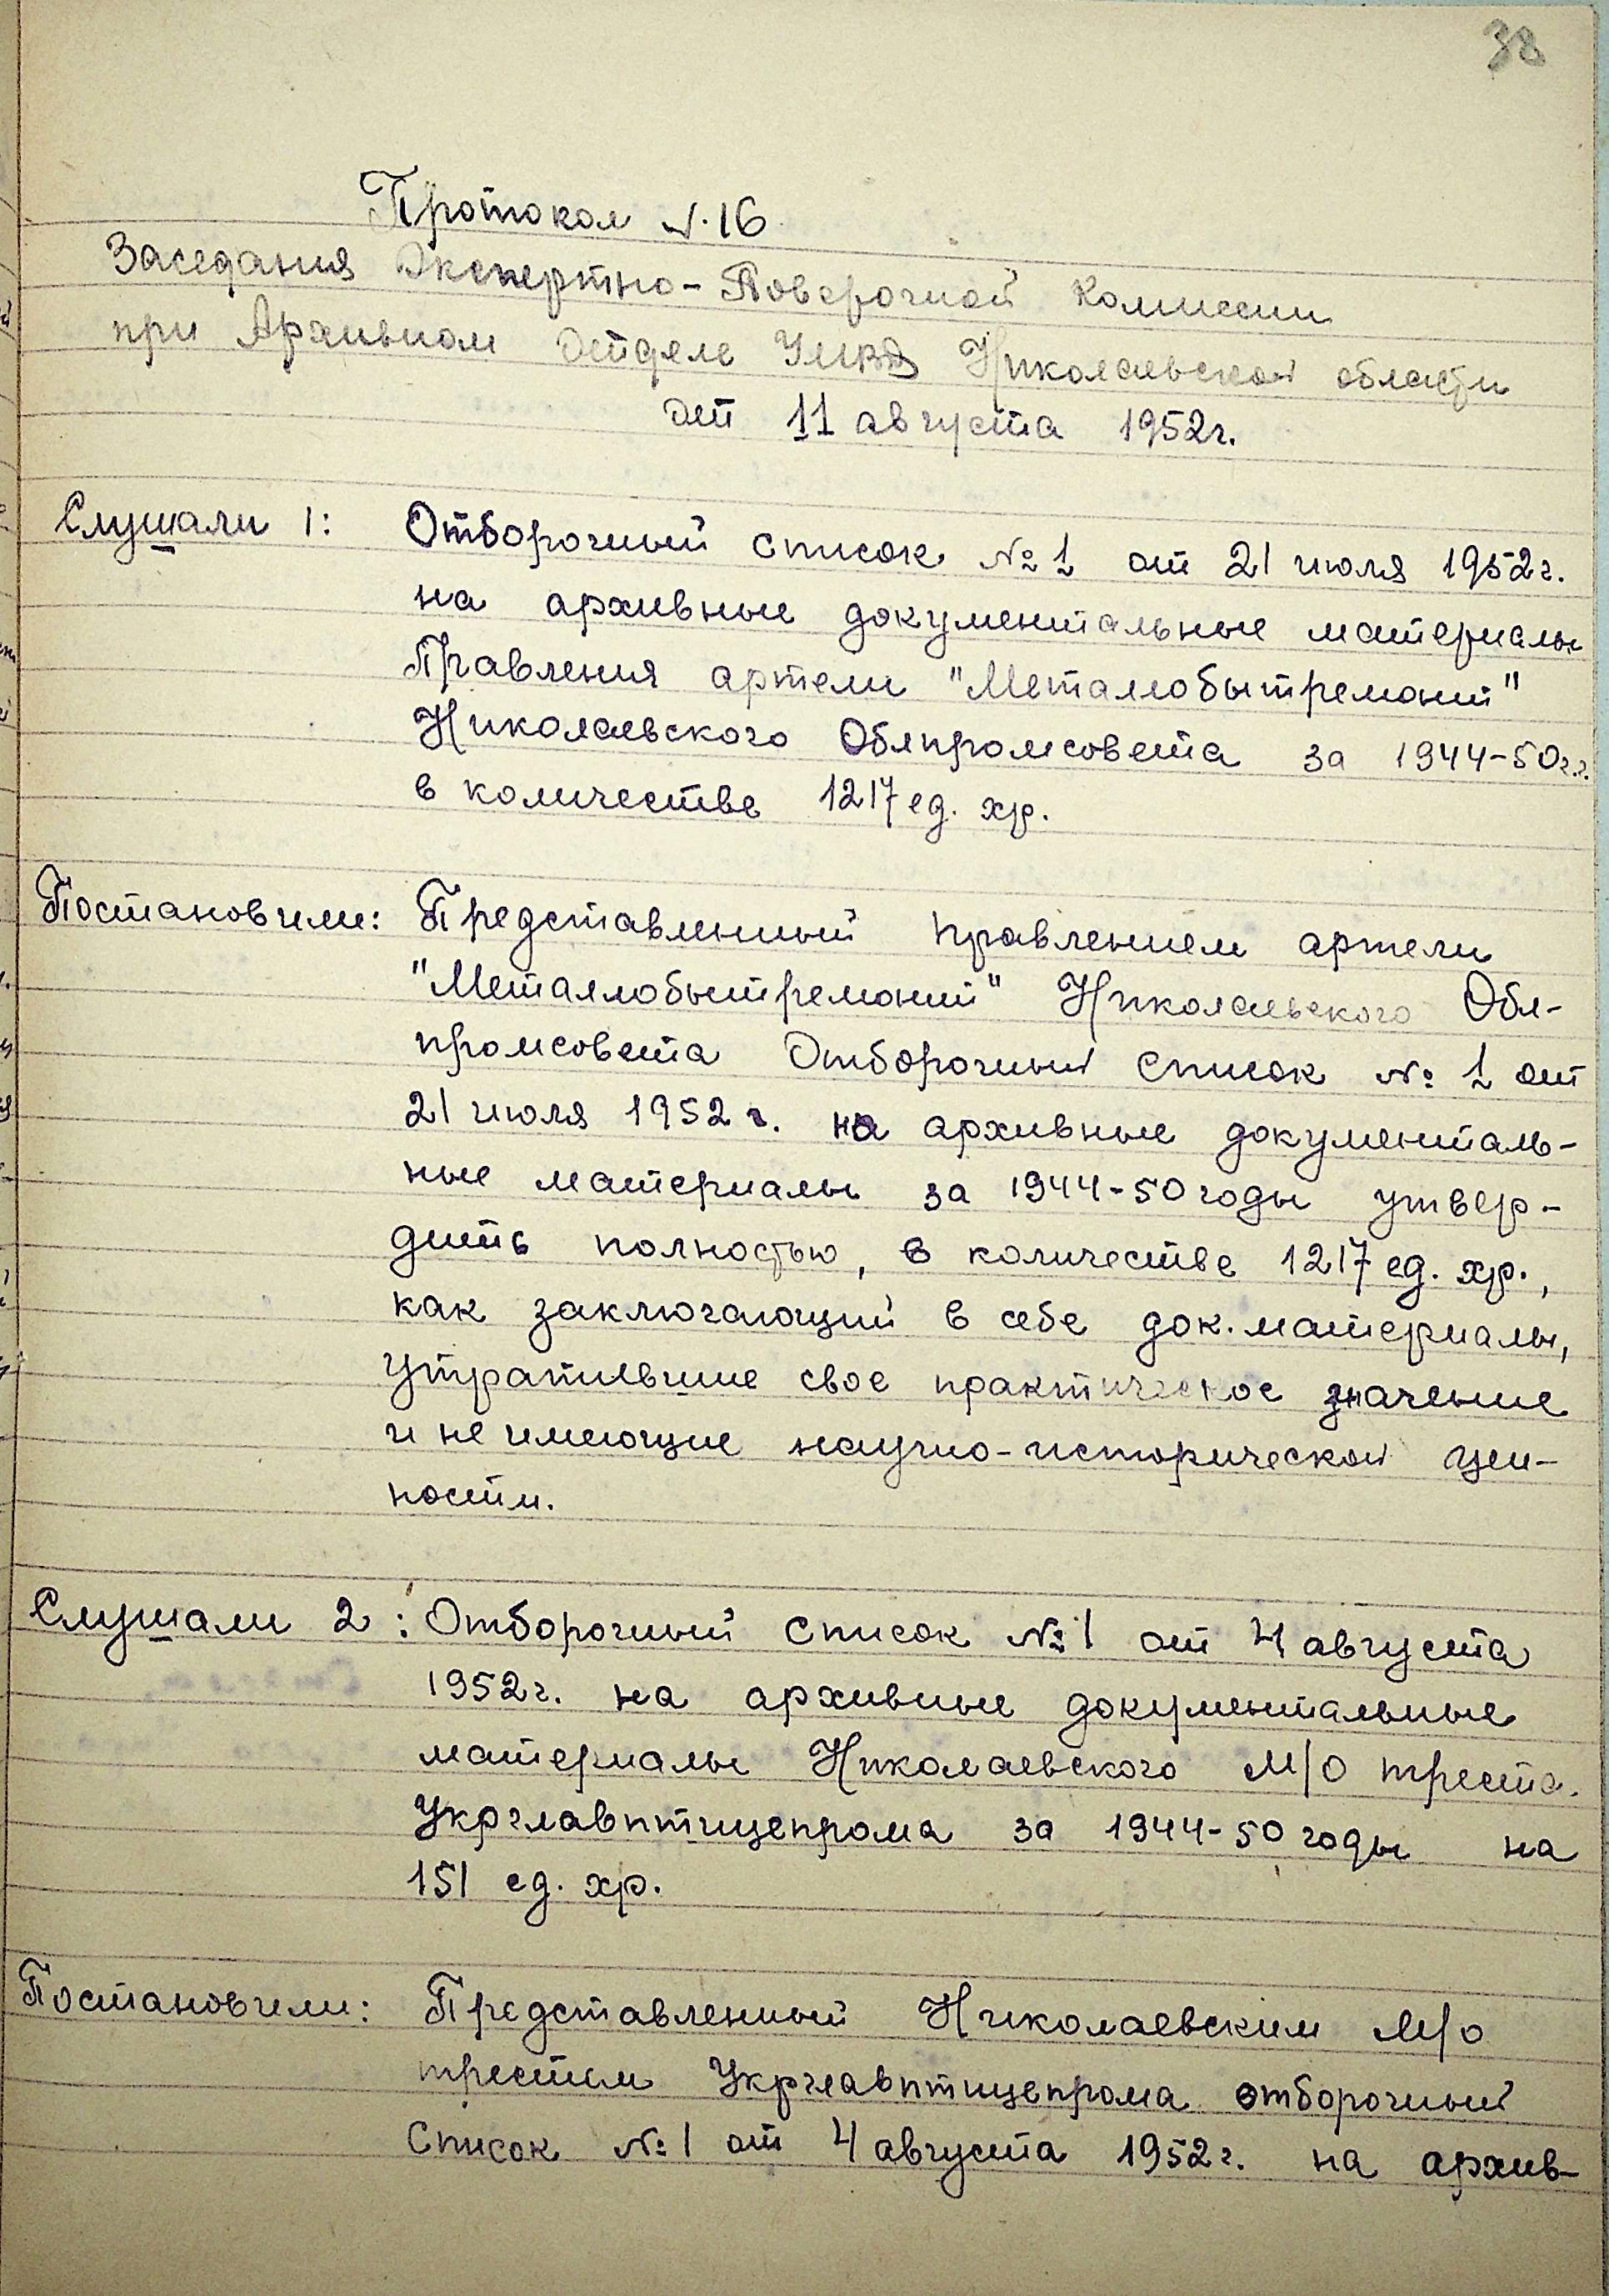 38
Протокол №. 16
Заседания Экспертно-Поверочной Комиссии
при Архивном Отделе УМВД Николаевской области
От 11 августа 1952г.
Слушали 1: Отборочный список № 1 от 21 июля 1952г.
на архивные документальные материалы
Правления артели "Металлобытремонт"
Николаевского Облпромсовета за 1944-50г.г.
в количестве 1217 ед. хр.
Постановили: Представленный правлением артели
"Металлобытремонт" Николаевского Обл-
промсовета Отборочный список № 1 от
21 июля 1952 г. на архивные документаль-
ные материалы за 1944-50 годы утвер-
дить полностью, в количестве 1217 ед. хр.,
как заключающий в себе док. материалы,
утратившие свое практическое значение
и не имеющие научно-исторической цен-
ности.
Слушали 2: Отборочный список № 1 от 4 августа
1952г. на архивные документальные
материалы Николаевского М/О треста.
Укрглавптицепрома за 1944-50 годы на
151 ед. хр.
Постановили: Представленный Николаевским М/о
трестом Укрглавптицепрома отборочный
Список № 1 от 4 августа 1952г. на архив-